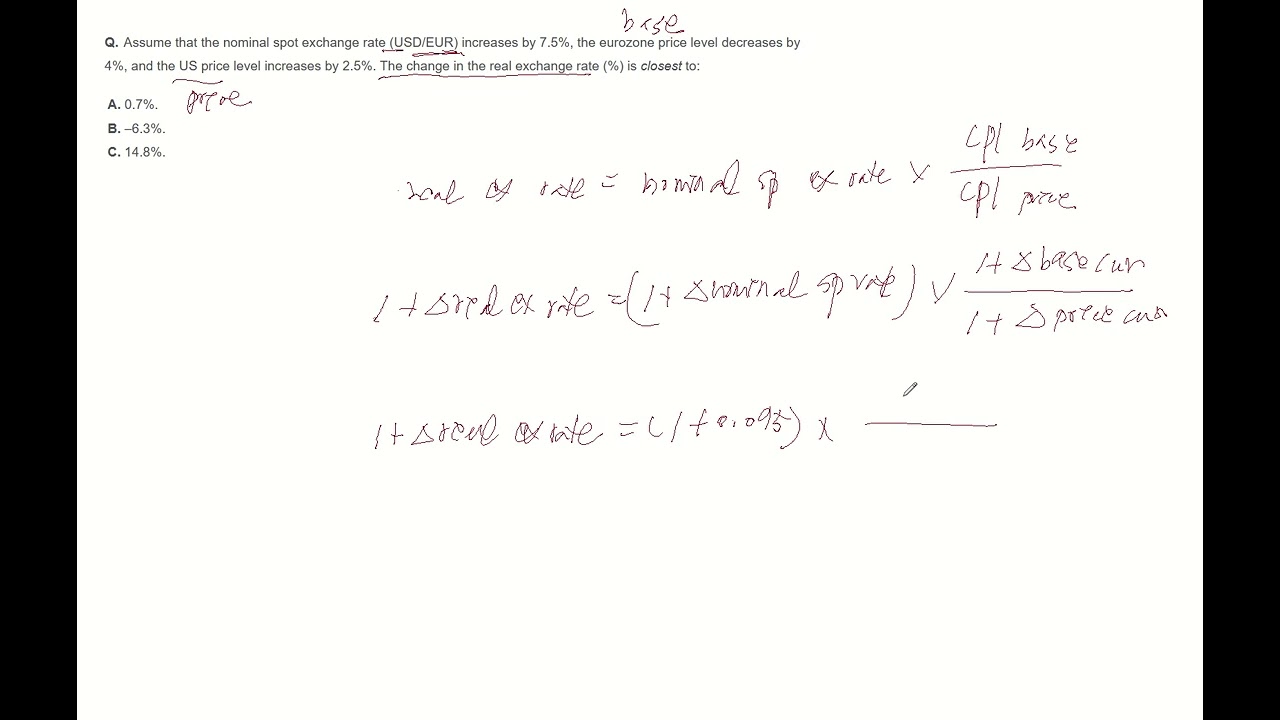 base
Q. Assume that the nominal spot exchange rate (USD/EUR) increases by 7.5%, the eurozone price level decreases by
4%, and the US price level increases by 2.5%. The change in the real exchange rate (%) is closest to:
price
A. 0.7%.
B. –6.3%.
C. 14.8%.
real ex rate = nominal sp ex rate × CPI base
CPI price
1+ Δreal ex rate = (1+ Δnominal sp rate) × 1+ Δ base cur
1+ Δ price cur
1+ Δreal ex rate = (1+0.075) ×